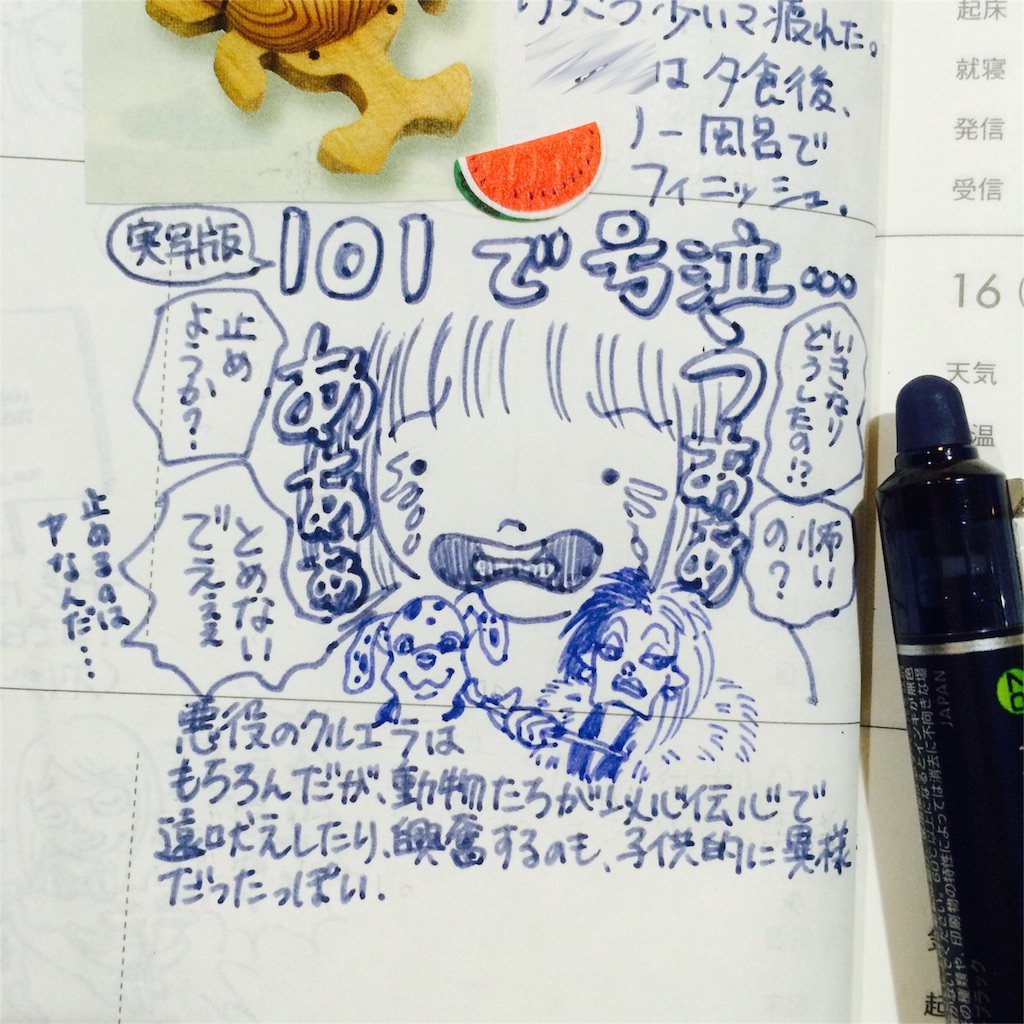 少いマ疲れた。
は夕食後、
ノー風呂で
フィニッシュ.
実写版
101で号泣...
いきなり
どうしたの!?
うああああ
ああああ
止め
ようか?
怖い
の?
とめない
でえええ
止めるのは
ヤなんだ...
悪役のクルエラは
もちろんだが、動物たちが以心伝心で
遠吠えしたり、興奮するのも、子供的に異様
だったっぽい.
起床
就寝
発信
受信
16
天気
温
起
JAPAN
ブラック